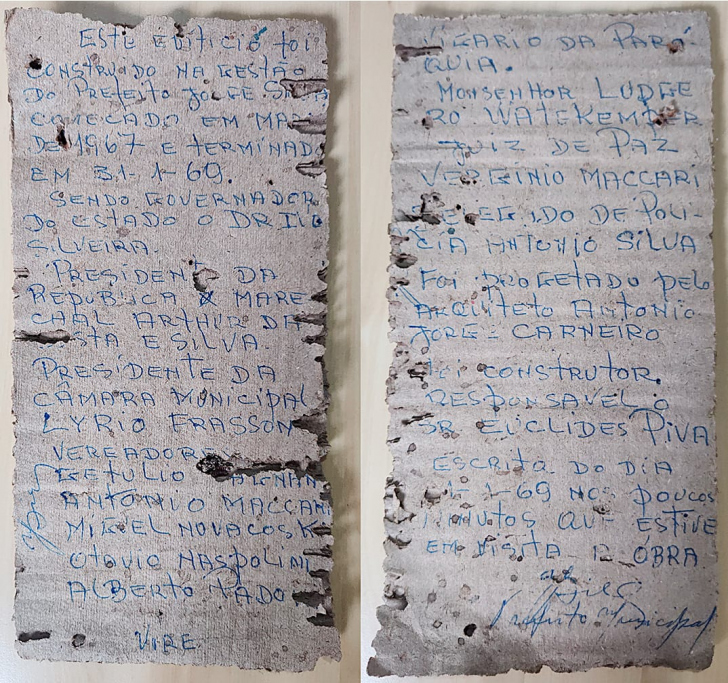 ESTE EDIFICIO foi
CONSTRUIDO NA GESTÃO
DO PREFEITO JORGE SILVA
COMEÇADO EM MA
DE 1967 E TERMINADO
EM 31-1-69.
SENDO GOVERNADOR
DO ESTADO O DR IVO
SILVEIRA.
PRESIDENTE DA
REPUBLICA MARE-
CHAL ARTHUR DA
STA E SILVA.
PRESIDENTE DA
CÂMARA MUNICIPAL
LYRIO FRASSON
VEREADORE
GETULIO
ANTONIO MACCARI
MIGUEL NOVACOSK
OTAVIO NASPOLINI
ALBERTO TADO
VIRE
VIGARIO DA PARÓ-
QUIA.
MONSENHOR LUDGE
RO WATEKEMPER
JUIZ DE PAZ
VERGINIO MACCARI
DELEGIDO DE POLI-
CIA ANTONIO SILVA
FOI PROGETADO PELO
ARQUITETO ANTONIO
JORGE CARNEIRO
foi CONSTRUTOR.
RESPONSAVEL O
SR EUCLIDES PIVA
ESCRITA DO DIA
1-1-69 NOS POUCOS
MINUTOS QUE ESTIVE
EM VISITA A OBRA
Prefeito Municipal